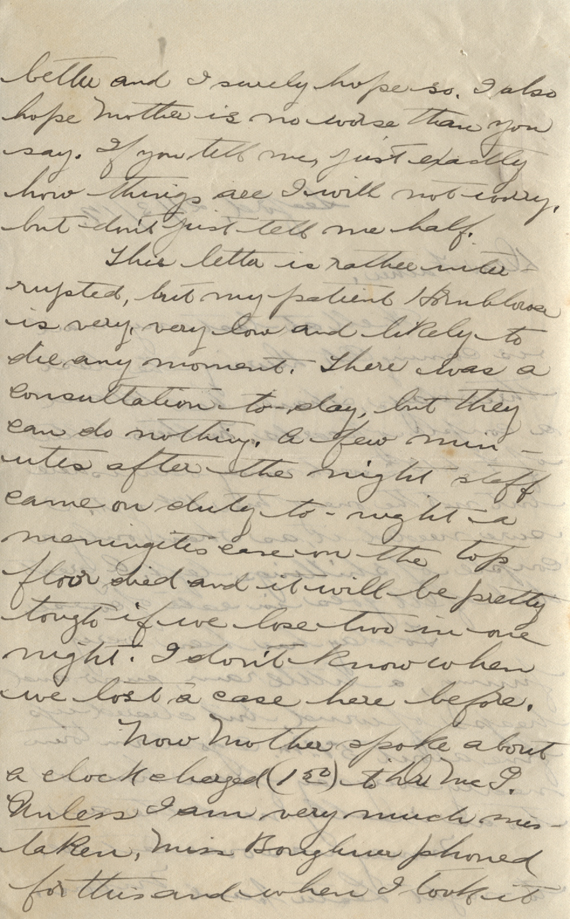 better and I surely hope so. I also
hope Mother is no worse than you
say. If you tell me, just exactly
how things are I will not worry,
but don't just tell me half.
This letter is rather inter
rupted, but my patient
is very, very low and likely to
die any moment. There was a
consultation to-day, but they
can do nothing. A few min-
utes after the night staff
came on duty to-night a
meningites case on the top
floor died and it will be pretty
tough if we lose two in one
night. I don't know when
we lost a case here before.
Now Mother spoke about
a clock charged (1 50) to Mc P.
Unless I am very much mis-
taken, Miss phoned
for this and when I took it